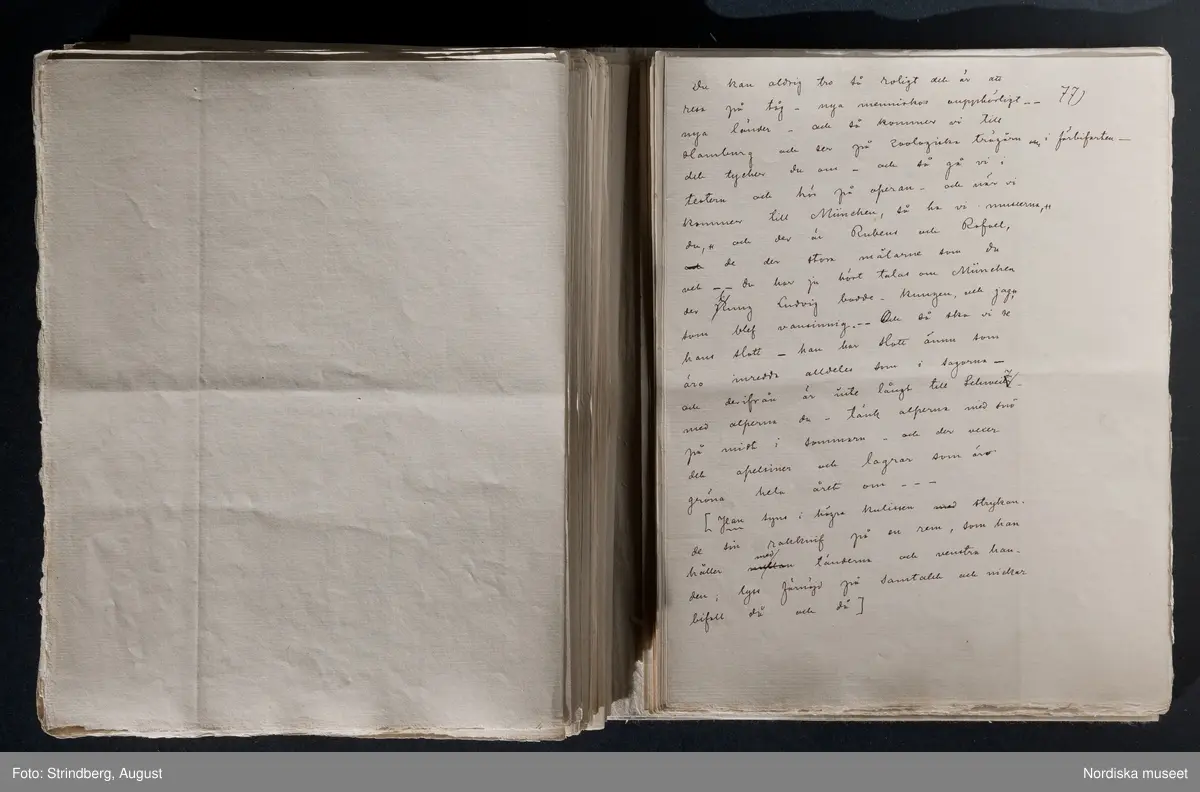 Du kan aldrig tro så roligt det är att
resa på tåg - nya menniskor oupphörligt -- 77)
nya länder - och så kommer vi till
Hamburg och ser på zoologiska trägårn i förbifarten -
det tycker du om - och så gå vi i
teatern och hör på operan - och när vi
kommer till München, så ha vi museerna,
du, och der är Rubens och Rafael,
och de der stora målarne som du
vet -- Du har ju hört talas om München
der Kung Ludvig bodde - kungen, och
som blef vansinnig. -- Och så ska vi se
hans slott - han har slott ännu som
äro inredda alldeles som i sagorna -
och derifrån är inte långt till Schweitz -
med alperna du - tänk alperna med snö
på midt i sommarn - och der vexer
det apelsiner och lagrar som äro
gröna hela året om - - -
[Jean syns i högra kulissen med strykan-
de sin rakknif på en rem, som han
håller med tänderna och venstra han-
den; lyss förnöjd på samtalet och nickar
bifall då och då]
Foto: Strindberg, August
Nordiska museet